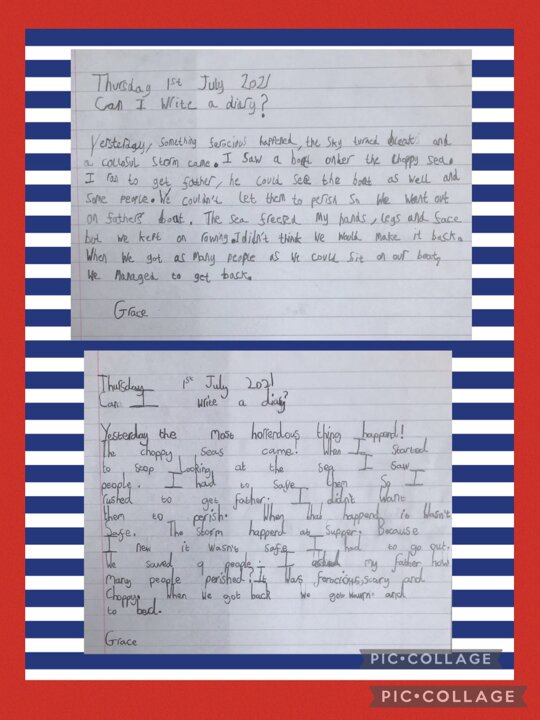 Thursday 1st July 2021
Can I write a diary?
Yesterday, something feracious happened, the sky turned and
a collosul storm came. I saw a boat onder the choppy sea.
I ran to get father, he could see the boat as well and
some people. We couldn't let them to perish so we want out
on fathers boat. The sea freezed my hands, legs and face
but we kept on rowing. I didn't think we would make it back.
When we got as many people as we could sit on our boat,
we managed to get back.
Grace
Thursday 1st July 2021
Can I write a diary?
Yesterday the most horrendous thing happend!
The choppy seas came. When I started
to stop looking at the sea I saw
people. I had to safe them so I
rushed to get father. I didn't want
them to perish. When that happend it wasn't
safe. The storm happend at supper. Because
I new it wasn't safe I had to go out.
We saved 9 people. I my father how
many people perished! It was ferocious, scary and
choppy. When we got back we got warm and
to bed.
Grace
PIC•COLLAGE
PIC•COLLAGE